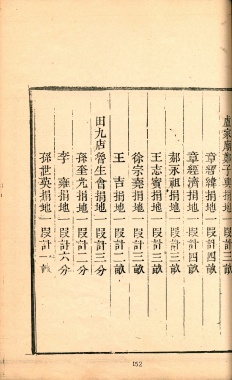 子與捐地一段計三畝
章經緯捐地一段計四畝
章經濟捐地一段計四畝
郝永祖捐地一段計三畝
王志賓捐地一段計二畝
徐宗堯捐地一段計三畝
王吉捐地一段計二畝
田九店魯生會捐地一段計三分
孫奎光捐地一段計二分
李雍捐地一段計六分
孫世英捐地一段計一畝
152